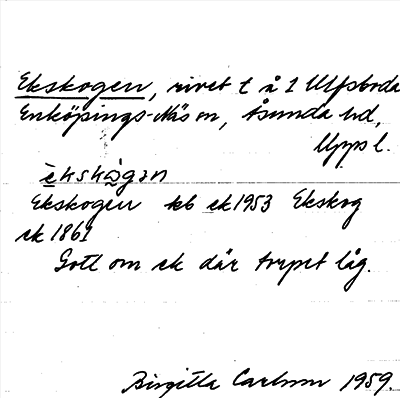 Ekskogen, rivet t å 1 Ulfsboda
Enköpings-Näs sn, Åsunda hd,
Upps l.
èkskògan
Ekskogen kb ek 1953 Ekskog
ek 1861
Gott om ek där torpet låg.
Birgitta Carlsson 1959.